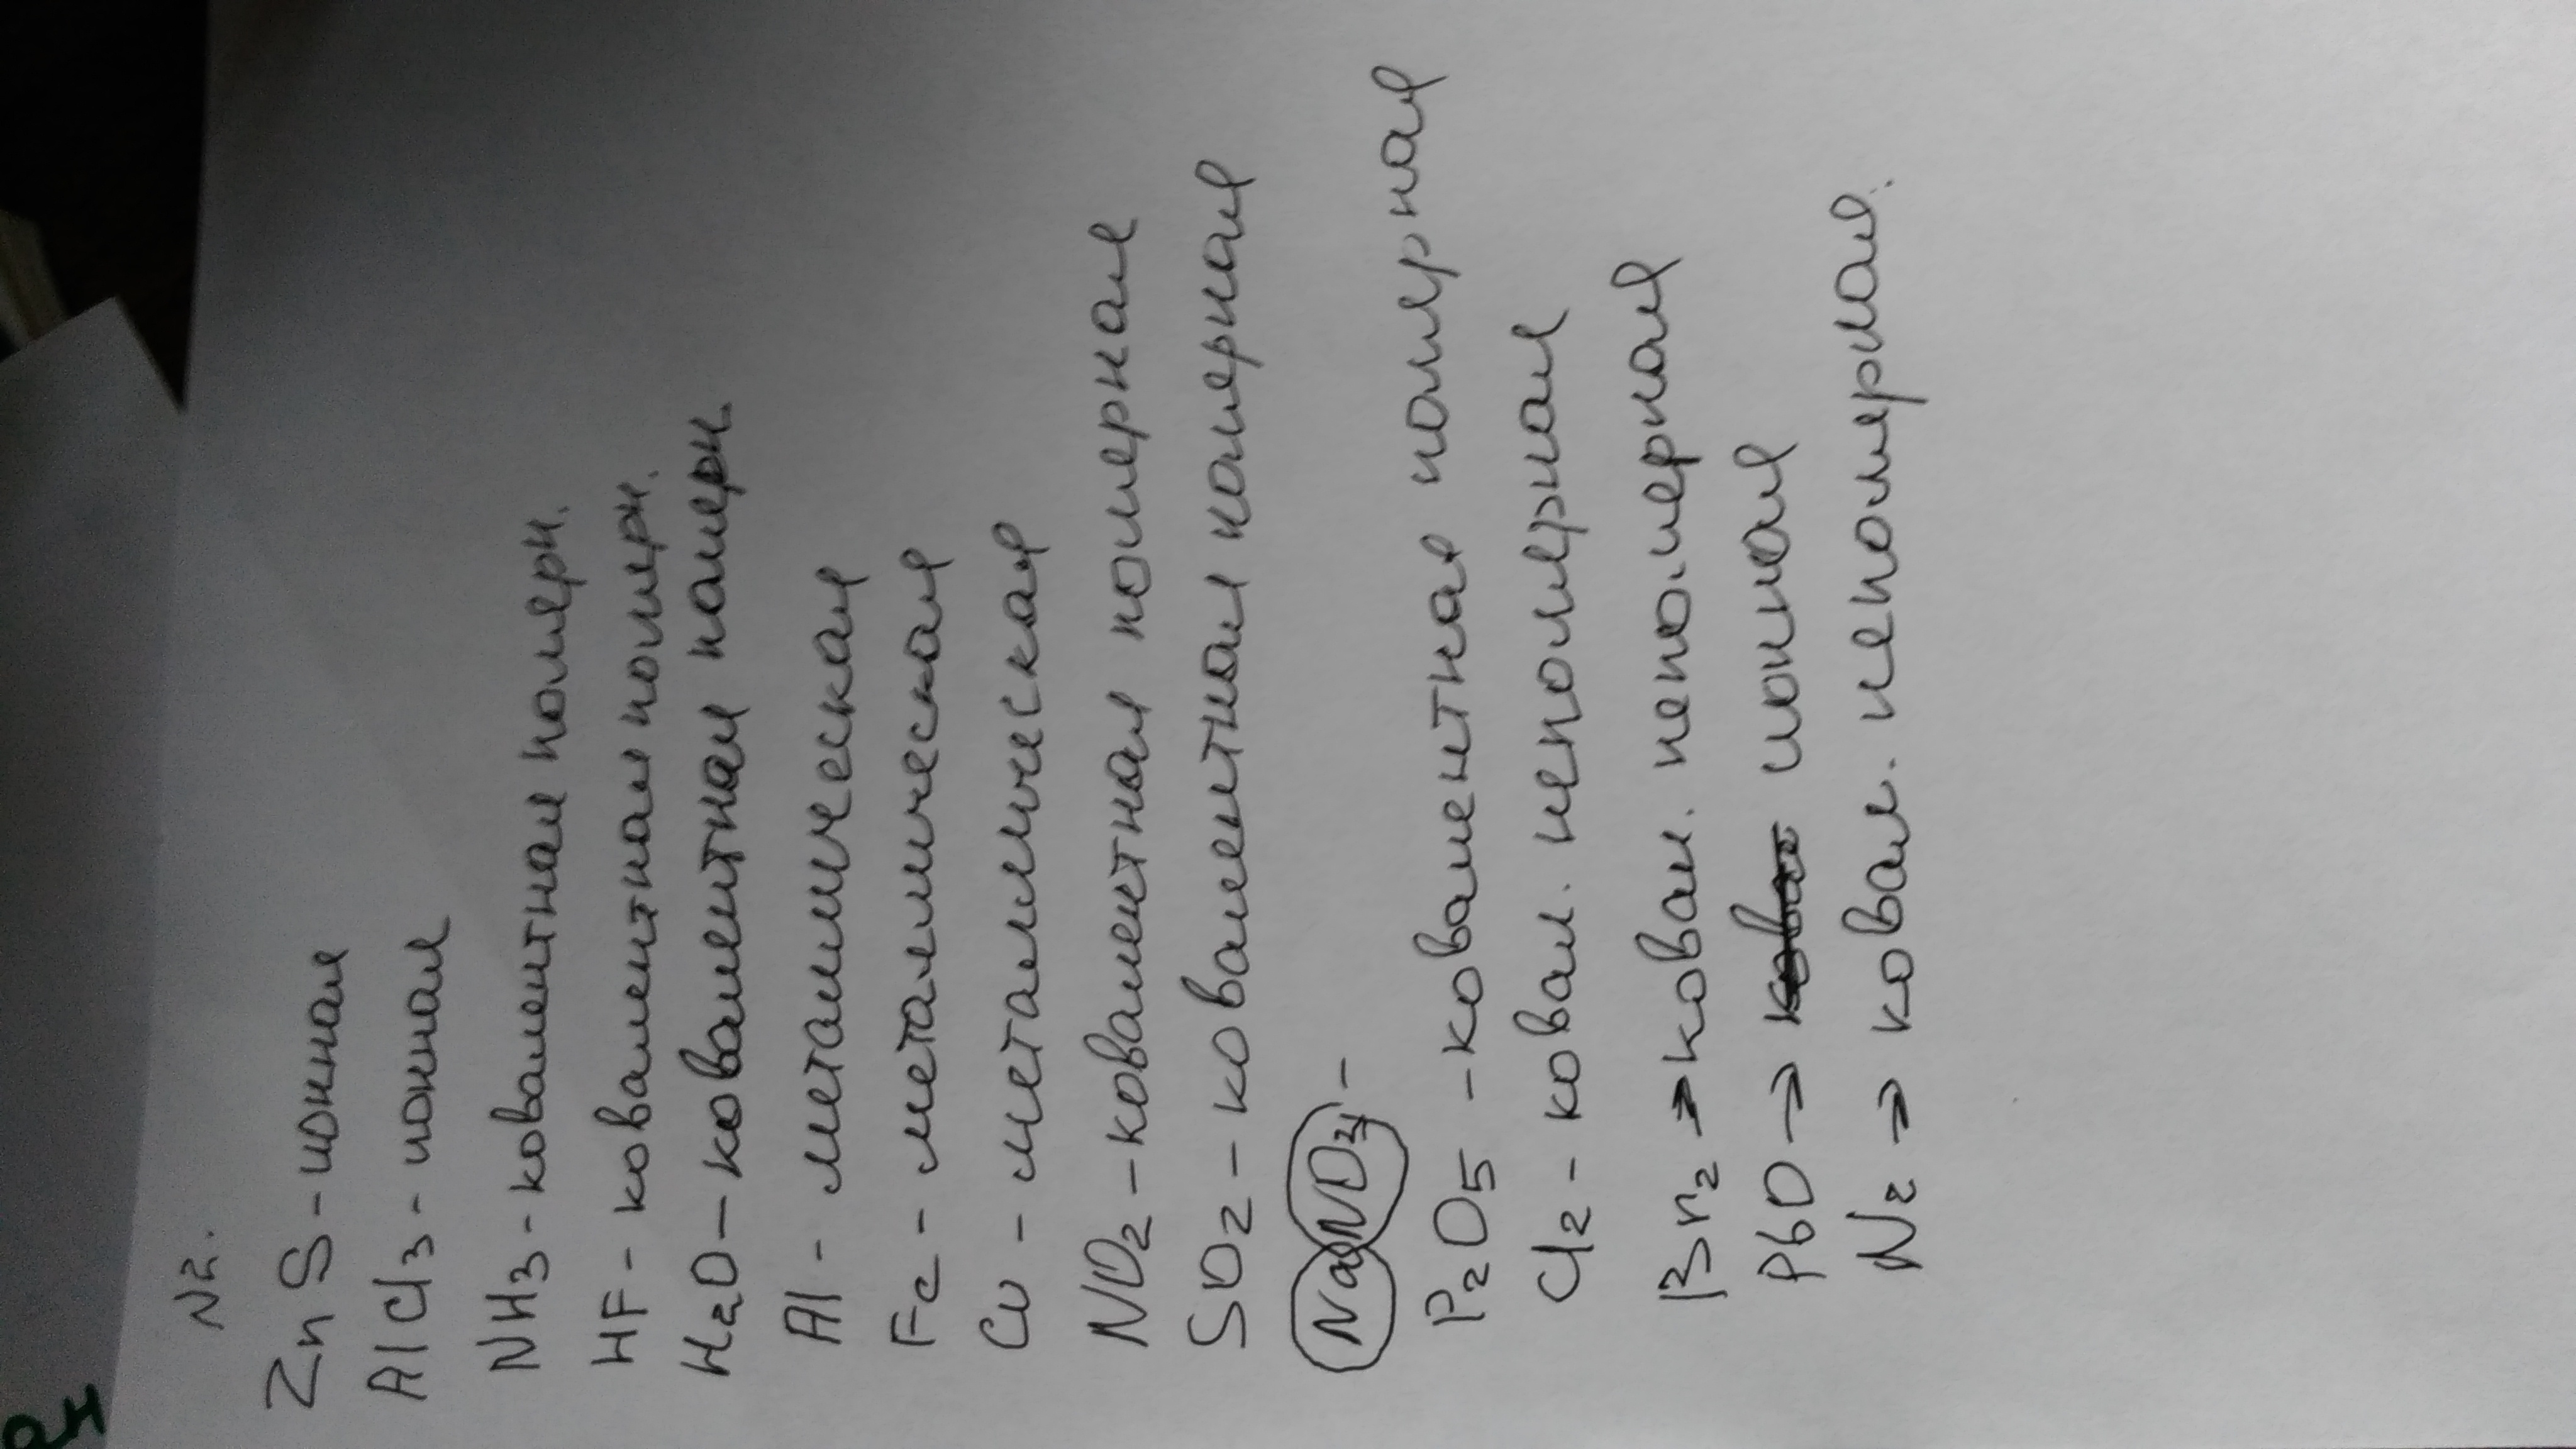 N2.
ZnS - ионная
AlCl3 - ионная
NH3 - ковалентная полярн.
HF - ковалентная полярн.
H2O - ковалентная полярн
Al - металическая
Fe - металлическая
Cu - металлическая
NO2 - ковалентная полярная
SO2 - ковалентная полярная
NaNO3 -
P2O5 - ковалентная полярная
Cl2 - ковал. неполярная
Br2 → ковал. неполярная
PbO → ионная
N2 → ковал. неполярная.